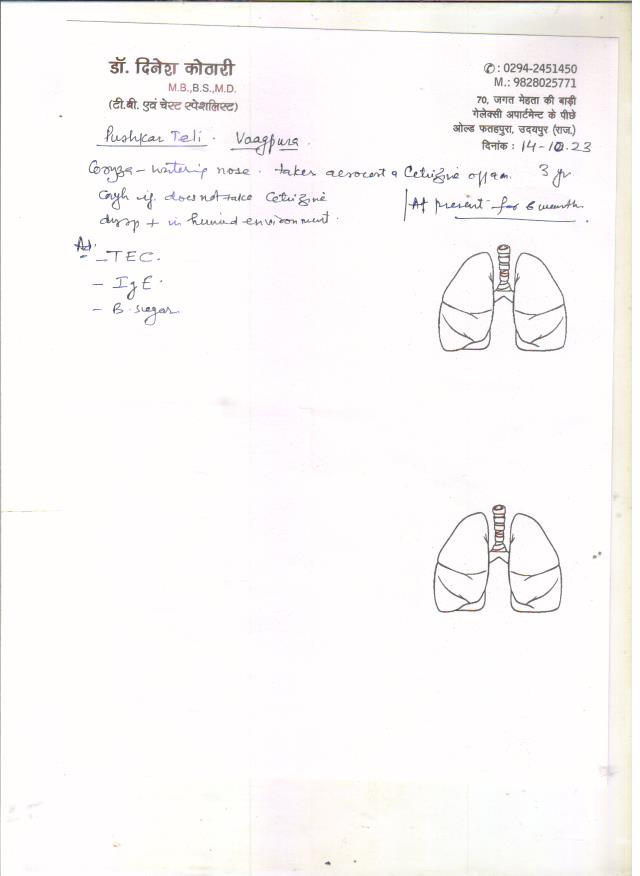 डॉ. दिनेश कोठारी
M.B.,B.S.,M.D.
(टी.बी. एवं चेस्ट स्पेशलिस्ट)
✆: 0294-2451450
M.: 9828025771
70, जगत मेहता की बाड़ी
गेलेक्सी अपार्टमेन्ट के पीछे
ओल्ड फतहपुरा, उदयपुर (राज.)
दिनांक : 14-10.23
Pushkar Teli . Vaagpura .
Coryza - watering nose . takes aerocort & Cetrizine off & on. 3 yr
Cough if does not take Cetrizine
At present for 6 month
dysp + in humid environment .
Ad.
- TEC.
- IgE.
- B. sugar